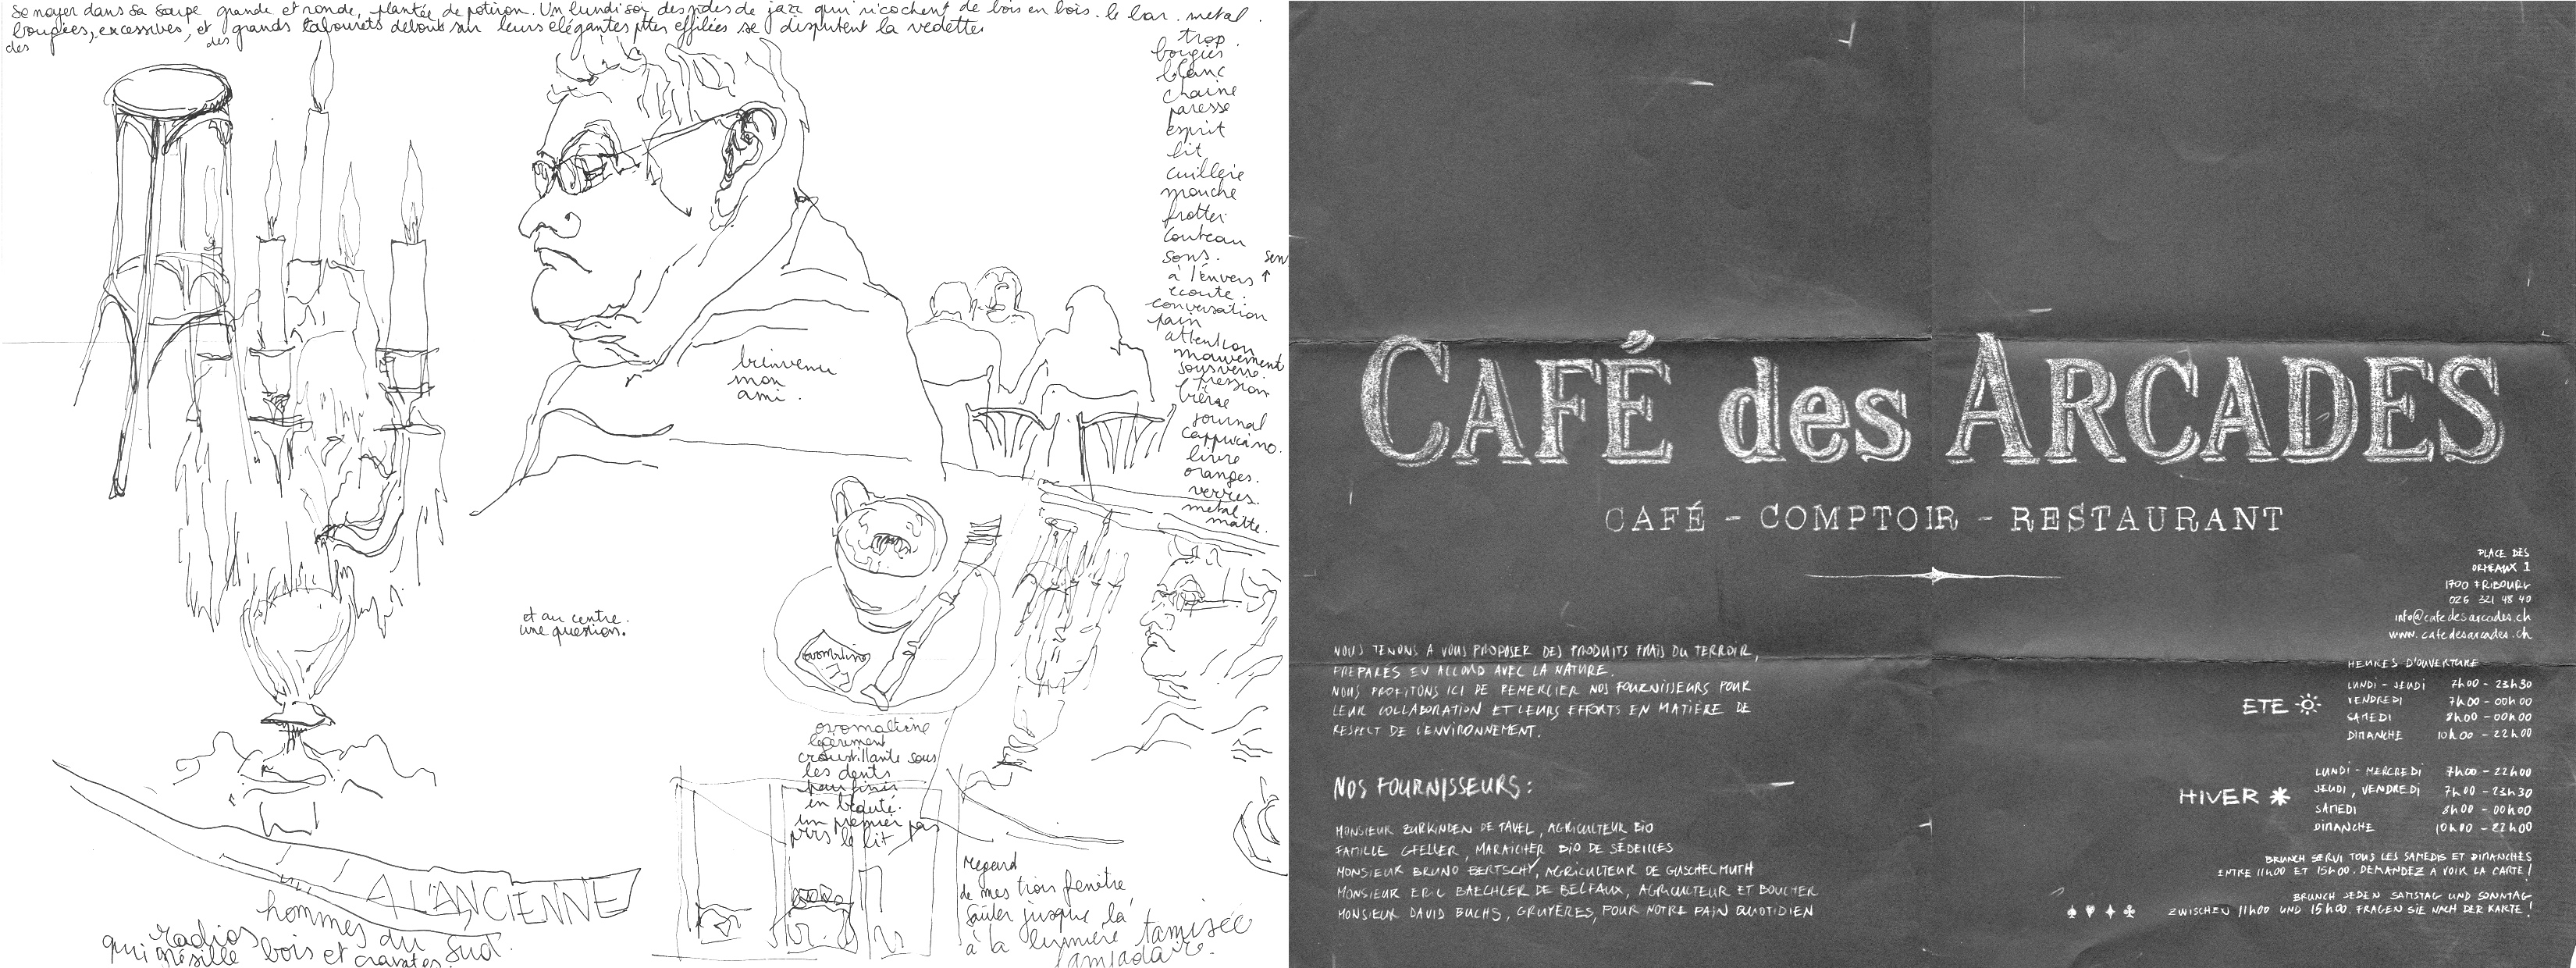 se noyer dans sa soupe grande et ronde, plantée de potiron. Un lundi soir des notes de jazz qui ricochent de bois en bois. le bar. metal.
bougies, excessives, et grands tabourets debout sur leurs élégantes pttes effilées se disputent la vedette
des des
trop.
bougies
blanc
chaine
paresse
esprit
lit
cuillère
mouche
frotter
couteau
sons. sen
à l'envers ↑
écoute.
conversation
pain
attention
mouvement
sous verre.
pression
bière
journal
cappucino.
livre
oranges.
verres.
metal
matte.
bienvenu
mon
ami.
et au centre.
une question.
ovomaltine
ovomaltine
légèrement
croustillante sous
les dents
pour finir
en beauté.
un premier pas
vers le lit
A L'ANCIENNE
hommes du
sud.
radios
qui grésille
bois et cravates.
regard
de mes trois fenêtre
sauter jusque là
à la lumière tamisée
lampadaire.
CAFÉ des ARCADES
CAFÉ - COMPTOIR - RESTAURANT
PLACE DES
ORMEAUX 1
1700 FRIBOURG
026 321 48 40
info@cafedesarcades.ch
www.cafedesarcades.ch
NOUS TENONS A VOUS PROPOSER DES PRODUITS FRAIS DU TERROIR,
PREPARES EN ACCORD AVEC LA NATURE.
NOUS PROFITONS ICI DE REMERCIER NOS FOURNISSEURS POUR
LEUR COLLABORATION ET LEURS EFFORTS EN MATIÈRE DE
RESPECT DE L'ENVIRONNEMENT.
NOS FOURNISSEURS :
MONSIEUR ZURKINDEN DE TAVEL, AGRICULTEUR BIO
FAMILLE GFELLER, MARAICHER BIO DE SÉDEILLES
MONSIEUR BRUNO BERTSCHY, AGRICULTEUR DE GUSCHELMUTH
MONSIEUR ERIC BAECHLER DE BELFAUX, AGRICULTEUR ET BOUCHER
MONSIEUR DAVID BUCHS, GRUYÈRES, POUR NOTRE PAIN QUOTIDIEN
HEURES D'OUVERTURE
ETE
LUNDI - JEUDI 7h00 - 23h30
VENDREDI 7h00 - 00h00
SAMEDI 8h00 - 00h00
DIMANCHE 10h00 - 22h00
HIVER
LUNDI - MERCREDI 7h00 - 22h00
JEUDI, VENDREDI 7h00 - 23h30
SAMEDI 8h00 - 00h00
DIMANCHE 10h00 - 22h00
BRUNCH SERVI TOUS LES SAMEDIS ET DIMANCHES
ENTRE 11h00 ET 15h00. DEMANDEZ A VOIR LA CARTE !
BRUNCH JEDEN SAMSTAG UND SONNTAG
ZWISCHEN 11h00 UND 15h00. FRAGEN SIE NACH DER KARTE !